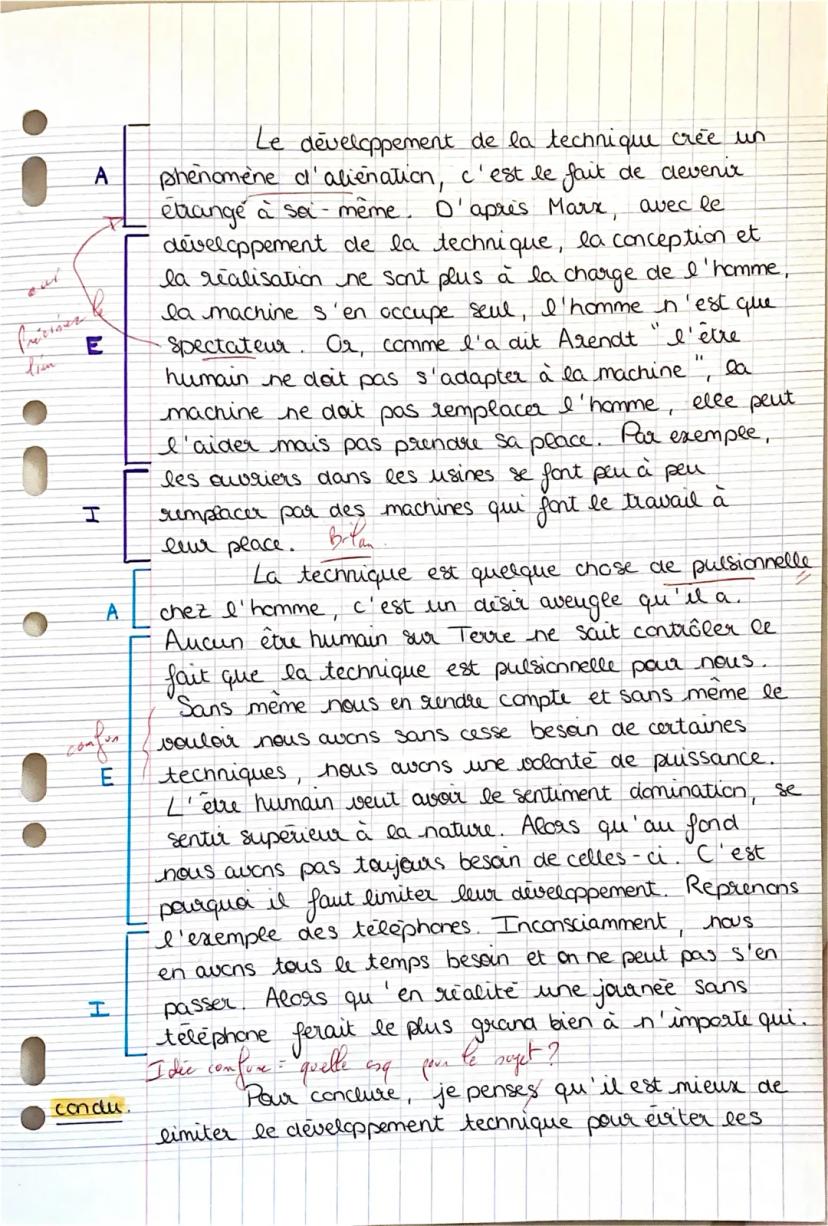 Le développement de la technique crée un
A phénomène d'aliénation, c'est le fait de devenir
étrangé à soi-même. D'après Marx, avec le
développement de la technique, la conception et
oui la réalisation ne sont plus à la charge de l'homme,
Préciser le la machine s'en occupe seul, l'homme n'est que
lien E spectateur. Or, comme l'a dit Arendt "l'être
humain ne doit pas s'adapter à la machine", la
machine ne doit pas remplacer l'homme, elle peut
l'aider mais pas prendre sa place. Par exemple,
les ouvriers dans les usines se font peu à peu
I remplacer par des machines qui font le travail à
leur place. Bilan.
La technique est quelque chose de pulsionnelle
A chez l'homme, c'est un désir aveugle qu'il a.
Aucun être humain sur Terre ne sait contrôler le
fait que la technique est pulsionnelle pour nous.
Sans même nous en rendre compte et sans même le
confus vouloir nous avons sans cesse besoin de certaines
E techniques, nous avons une volonté de puissance.
L'être humain veut avoir le sentiment domination, se
sentir supérieur à la nature. Alors qu'au fond
nous avons pas toujours besoin de celles-ci. C'est
pourquoi il faut limiter leur développement. Reprenons
l'exemple des téléphones. Inconsciamment, nous
en avons tous le temps besoin et on ne peut pas s'en
I passer. Alors qu'en réalité une journée sans
téléphone ferait le plus grand bien à n'importe qui.
Idée confuse = quelle csq pour le sujet?
Pour conclure, je penses qu'il est mieux de
conclu. limiter le développement technique pour éviter les